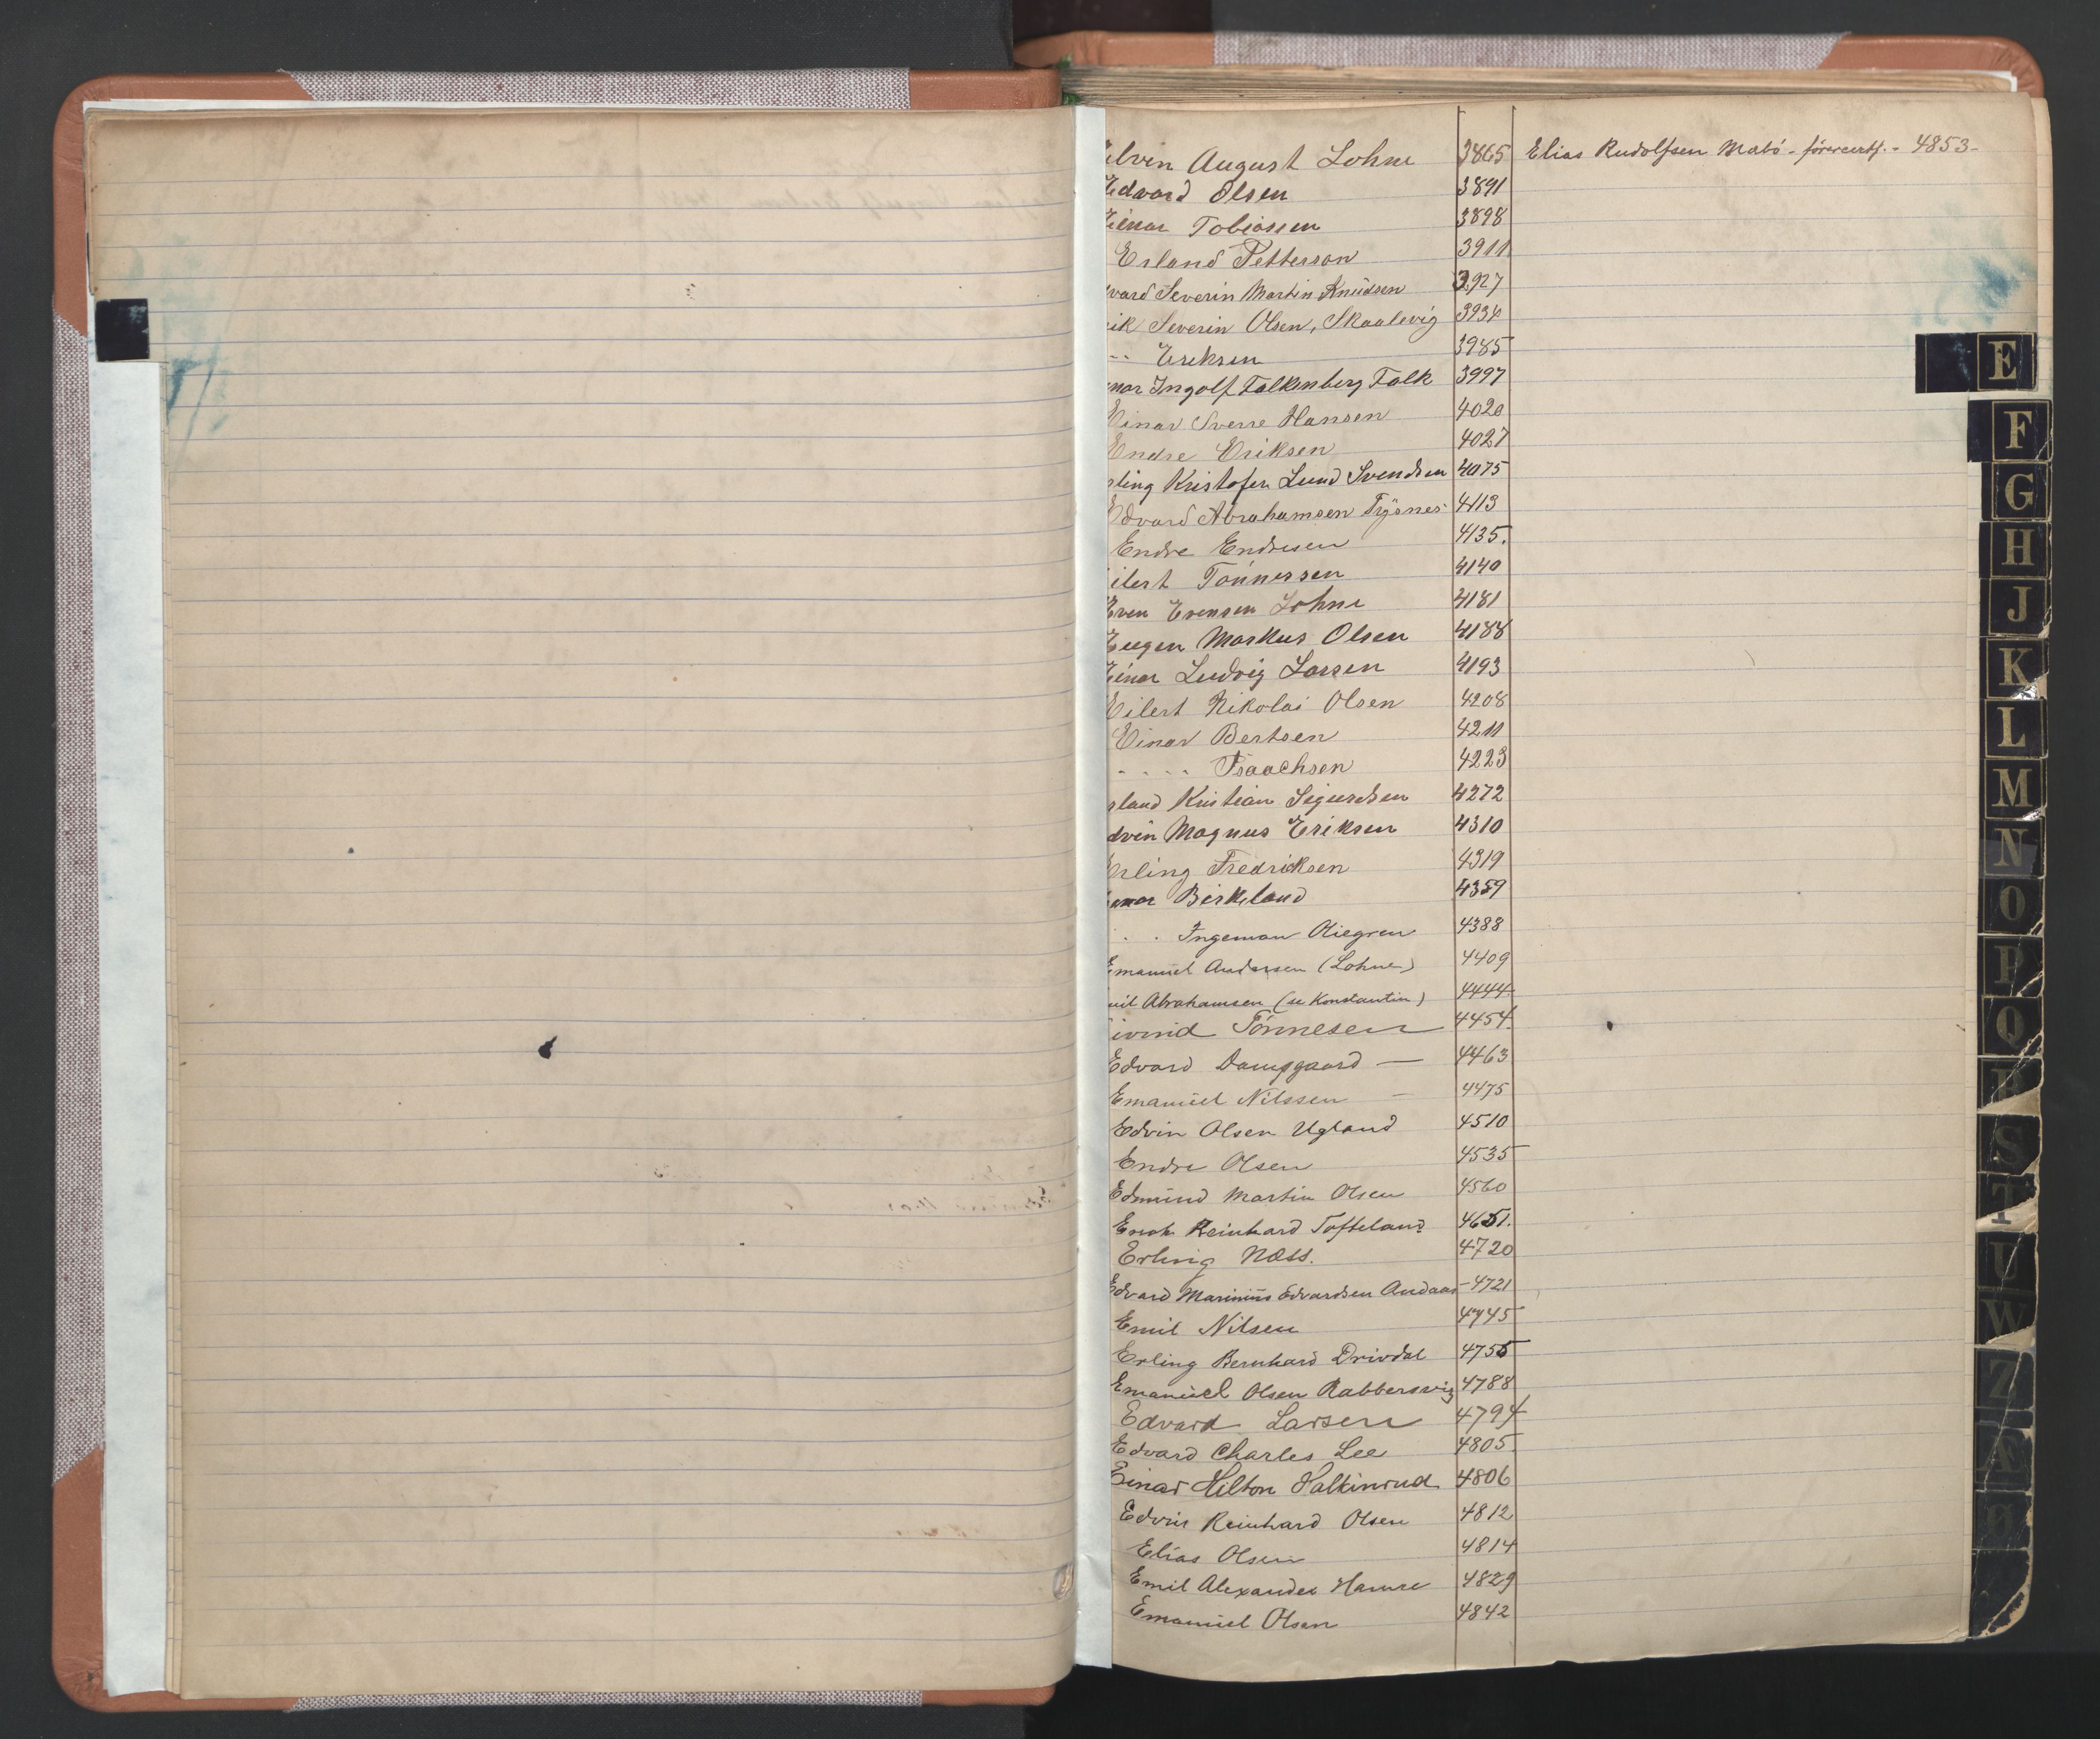 elvin August Lohne 3865 Elias Rudolfsen Mabö - förercertf. - 4853 -
Edvard Olsen 3891
Einar Tobiassen 3898
Erland Petterson 3911
vard Severin Martin Knudsen 3927
ik Severin Olsen, Skaalevig 3934
-- Eriksen 3985
nar Ingolf Falkenberg Falk 3997
Einar Sverre Hansen 4020
Endre Eriksen 4027
rling Kristofer Lund Svendsen 4075
Edvard Abrahamsen Frÿsnes 4113
Endre Endresen 4135.
ilert Tönnessen 4140
Even Evensen Lohne 4181
Eugen Markus Olsen 4188
Einar Ludvig Larsen 4193
Eilert Nikolai Olsen 4208
Einar Bertsen 4211
- - - - Isaachsen 4223
rland Kristian Sigurdsen 4272
dvin Magnus Eriksen 4310
Erling Fredriksen 4319
inar Birkeland 4359
- - Ingeman 4388
Emanuel Andersen (Lohne) 4409
mil Abrahamsen (se Konstantin) 4444.
ivind Tönnesen 4454.
Edvard Dampgaard — 4463
Emanuel Nilssen - 4475
Edvin Olsen Ugland 4510
Endre Olsen 4535
Edmund Martin Olsen 4560
Enok Reinhard Tofteland 4651.
Erling Næss. 4720
Edvard Marinius Edvardsen Andaas - 4721
Emil Nilsen 4745
Erling Bernhard Drivdal 4755
Emanuel Olsen Rabbersvig 4788
Edvard Larsen 4794
Edvard Charles Lee 4805
Einar Hilton Halkinrud 4806
Edvin Reinhard Olsen 4812
Elias Olsen 4814
Emil Alexander Hamre 4829
Emanuel Olsen 4842
E
F
G
H
J
K
L
M
N
O
P
Q
S
T
U
W
Z
Æ
Ø